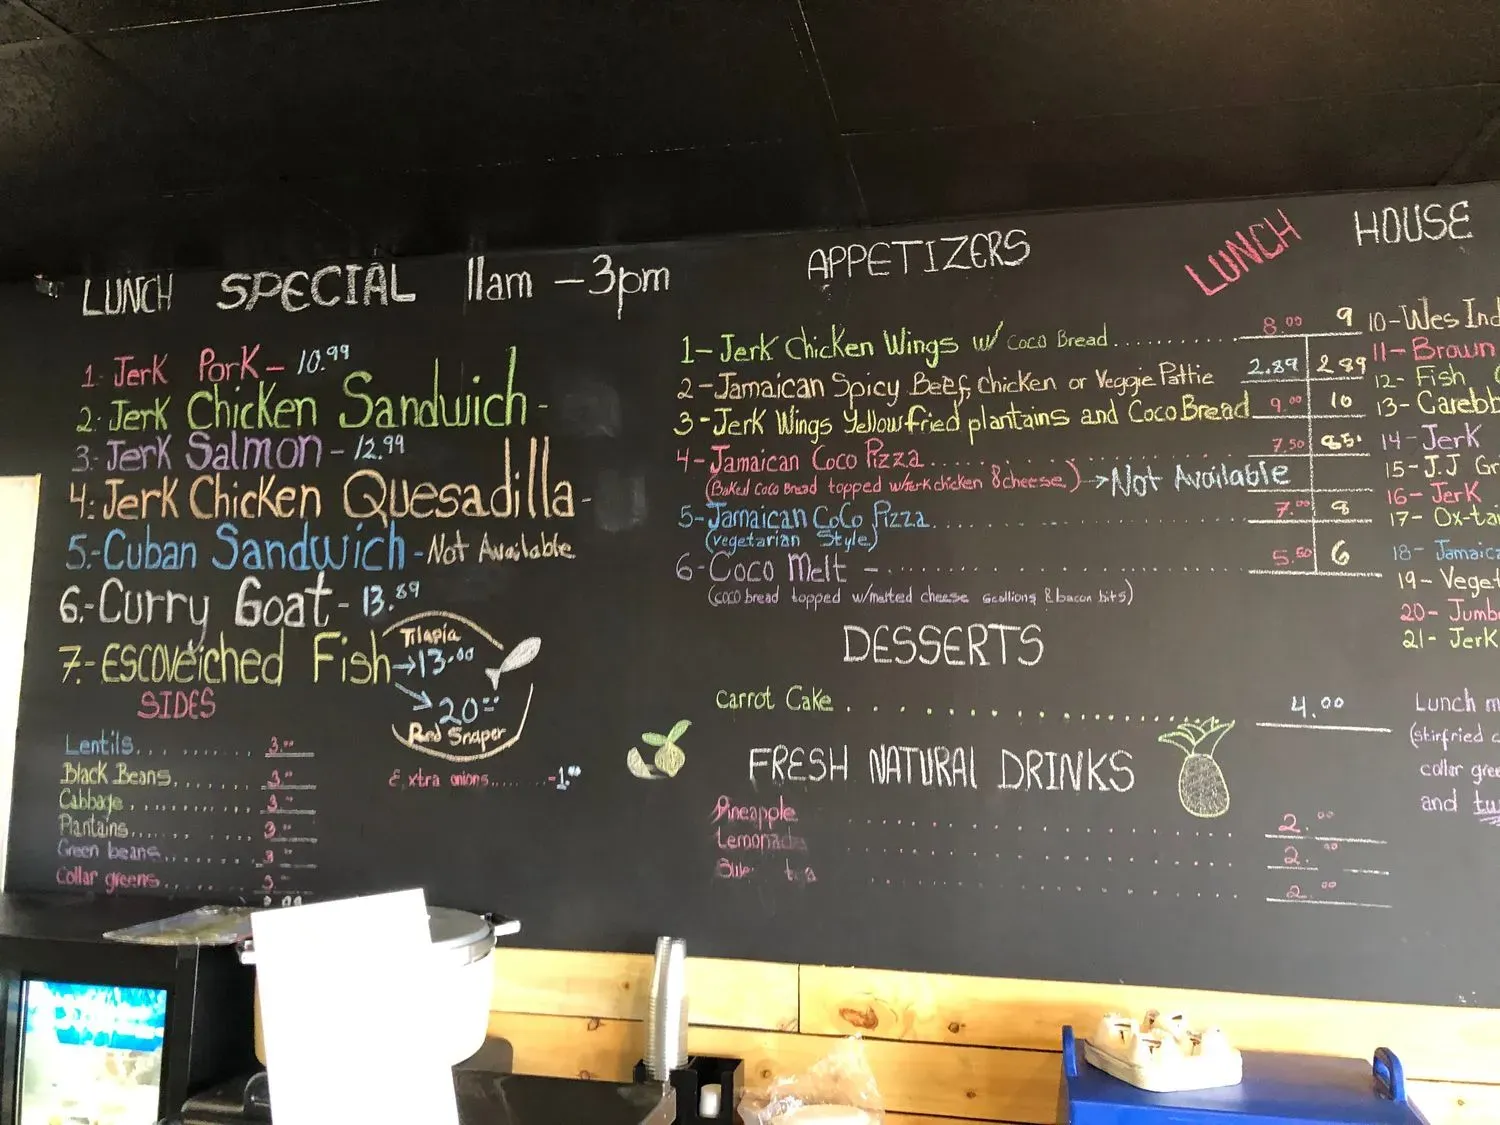 LUNCH SPECIAL 11am - 3pm
1- Jerk Pork - 10.99
2- Jerk Chicken Sandwich -
3- Jerk Salmon - 12.99
4- Jerk Chicken Quesadilla -
5.- Cuban Sandwich - Not Available
6.- Curry Goat - 13.89
7.- ESCOVEiched Fish
Tilapia
→ 13.00
→ 20.00
Red Snaper
SIDES
Lentils........ 3.00
Black Beans....... 3.00
Cabbage............ 3.00
Plantains........... 3.00
Green beans......... 3
Collar greens........ 3.
Extra onions...... -1.00
APPETIZERS
LUNCH HOUSE
1- Jerk Chicken Wings w/ Coco Bread............ 8.00 9
2- Jamaican Spicy Beef, chicken or Veggie Pattie 2.89 2 89
3- Jerk Wings Yellow fried plantains and Coco Bread 9.00 10
4- Jamaican Coco Pizza............ 7.50
(Baked Coco Bread topped w/Jerk chicken & cheese) → Not Available
5- Jamaican CoCo Pizza............ 7.00 8
(vegetarian Style)
6- Coco Melt -............ 5.50 6
(coco bread topped w/melted cheese scallions & bacon bits)
DESSERTS
Carrot Cake............ 4.00
FRESH NATURAL DRINKS
Pineapple............ 2.00
Lemonade............ 2.00
............ 2.00
10- Wes Ind
11- Brown
12- Fish
13- Carebb
14- Jerk
15- J.J Gr
16- Jerk
17- Ox-tai
18- Jamaic
19- Veget
20- Jumb
21- Jerk
Lunch m
(stirfried c
collar gree
and tu